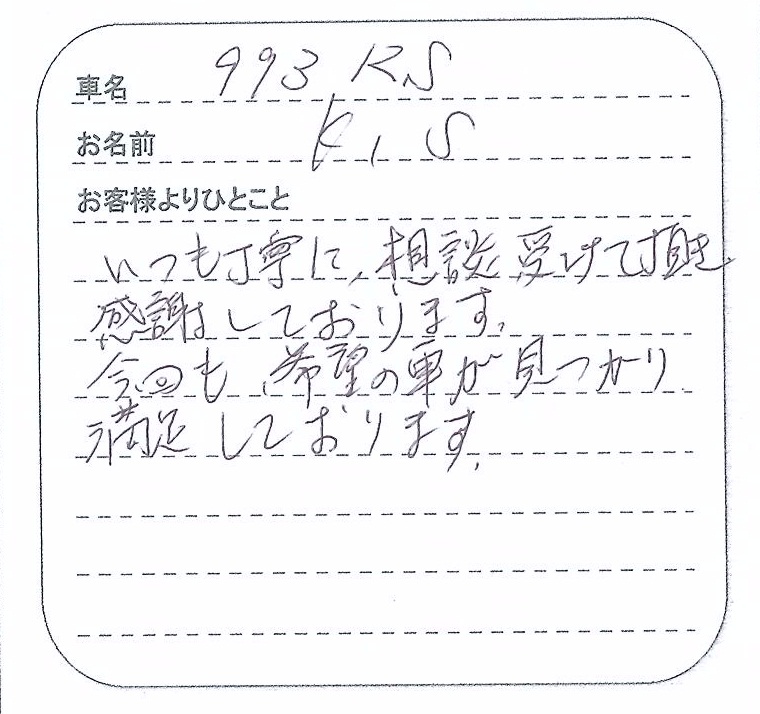 車名 993 RS
お名前 K, S
お客様よりひとこと
いつも丁寧に、相談受けて頂き
感謝しております。
今回も、希望の車が見つかり
満足しております。